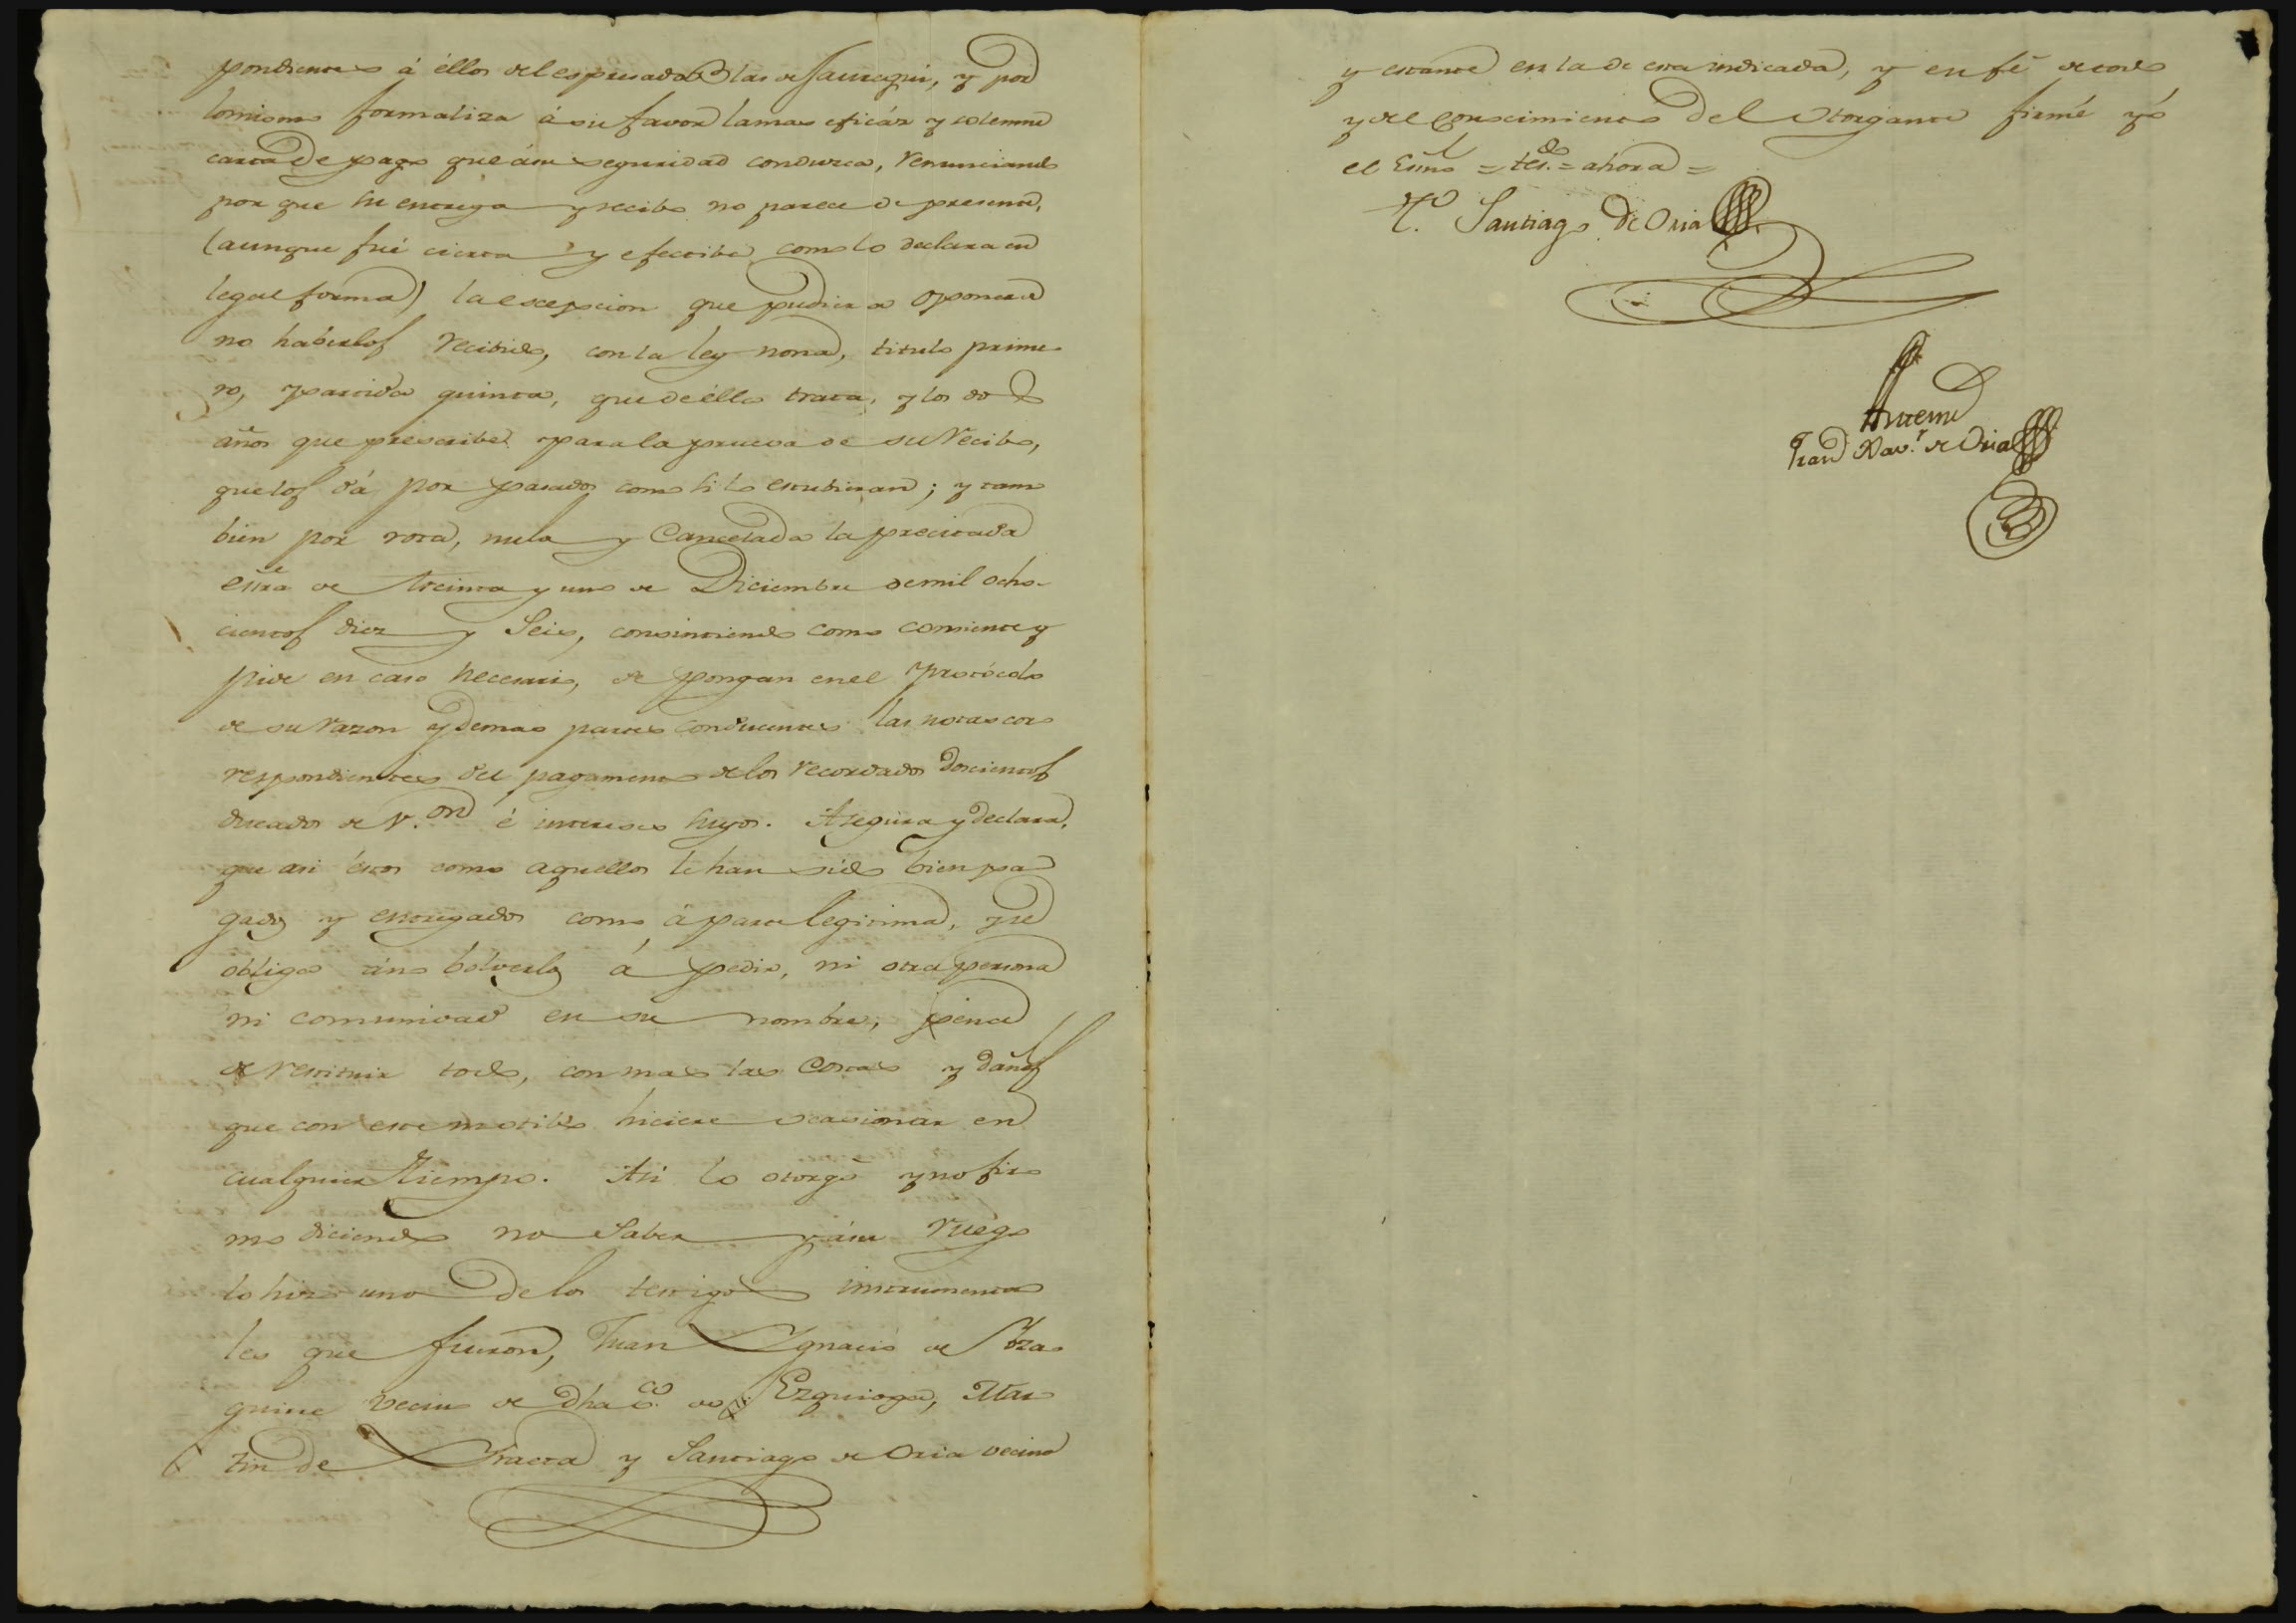 pondientes á éllos del espresado Blas de Jauregui, y por
lo mismo formaliza á su favor la mas eficáz y solemne
carta de pago que á su seguridad conduzca, renunciando
por que su entrega y recibo no parece de presente,
(aunque fué cierta y efectiba como lo declara en
legal forma) la escepcion que pudiera oponer de
no haberlos recibido, con la ley nona, titulo prime
ro, partida quinta, que de éllo trata, y los dos
años que prescribe para la prueva de su recibo,
que los dá por pasados como si lo estubieran; y tam
bien por rota, nula y cancelada la precitada
essra de treinta y uno de Diciembre de mil ocho-
cientos diez y seis, consintiendo como consiente y
pide en caso necesario, se pongan en el protócolo
de su razon y demas partes conducentes las notas cor
respondientes del pagamento de los recordados doscientos
ducados de v.on é intereses suyos. Asegura y declara,
que asi éstos como aquellos le han sido bien pa
gados y entregados como á parte legitima, y se
obliga á no bolverlos á pedir, ni otra persona
ni comunidad en su nombre, pena
de restituir todo, con mas las costas y daños
que con este motibo hiciere ocasionar en
cualquier tiempo. Asi lo otorgó y no fir
mo diciendo no saber y á su ruego
lo hizo uno de los testigos instrumenta
les que fueron, Juan Ygnacio de
vecino de dha de Ezquioga, Mar
tin de Yraeta y Santiago de Oria vecino
y estante en la de esta indicada, y en fé de todo
y de conocimiento del otorgante firmé yó
el Essno = tdo. = ahora =
T.o Santiago de Oria
Antemi
Fran.co Xav.r de Oria